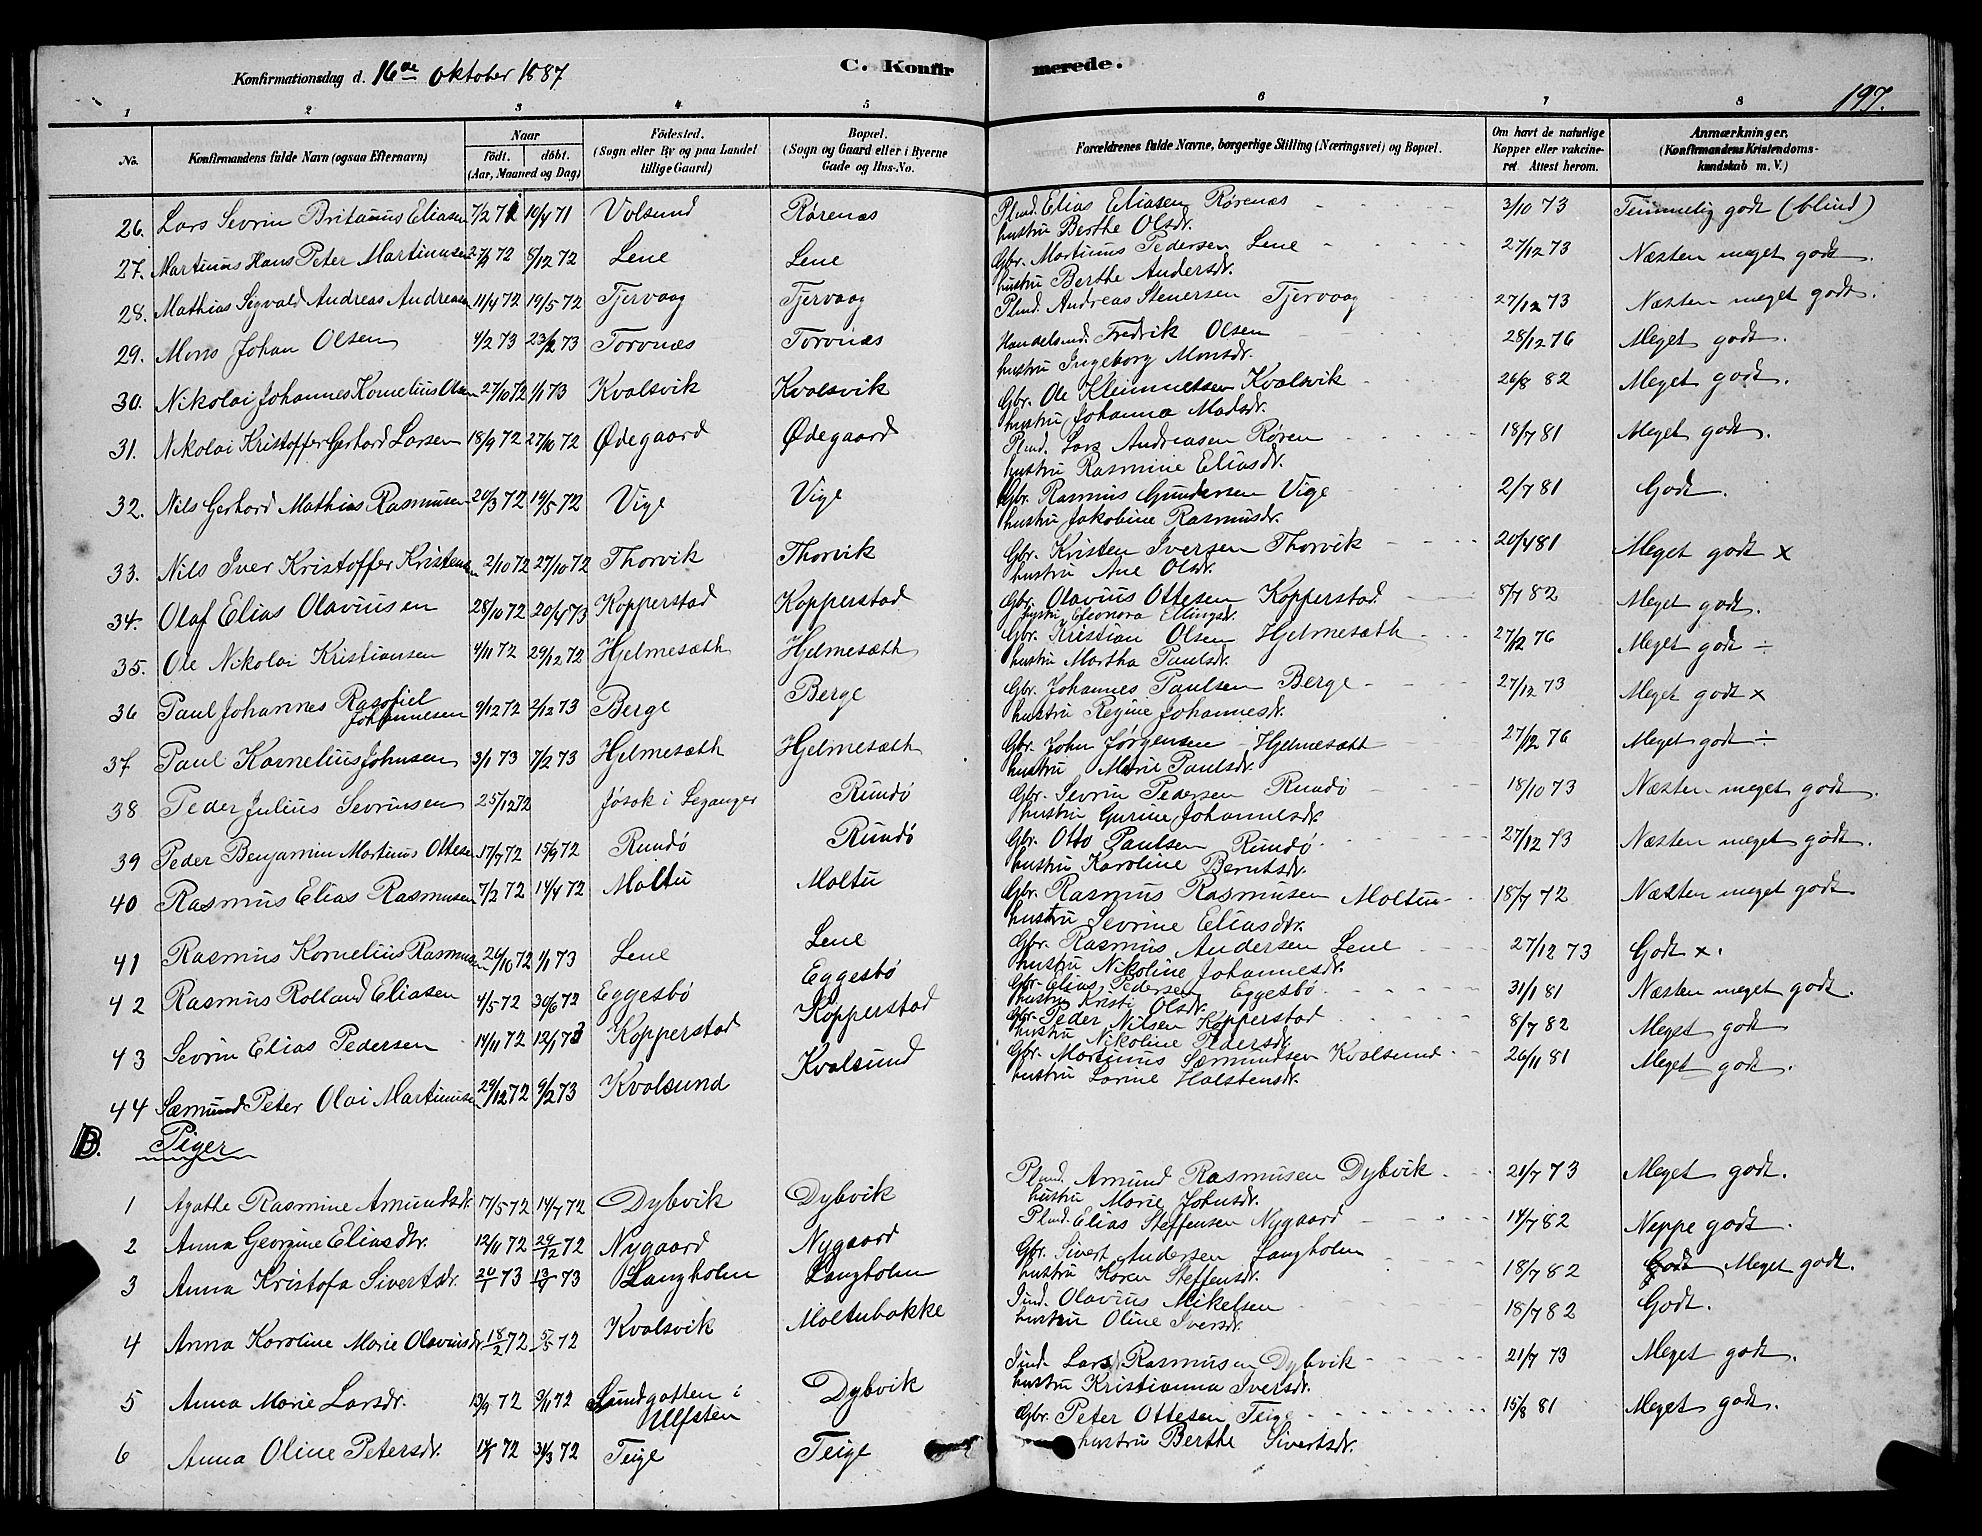 Konfirmationsdag d. 16de Oktober 1887
C. Konfirmerede.
197.
1 2 3 4 5 6 7 8
No. Konfirmandens fulde Navn (ogsaa Efternavn) Naar født. døbt. (Aar, Maaned og Dag) Fødested. (Sogn eller By og paa Landet tillige Gaard) Bopæl. (Sogn og Gaard eller i Byerne Gade og Hus-No. Forældrenes fulde Navne, borgerlige Stilling (Næringsvei) og Bopæl. Om havt de naturlige Kopper eller vakcineret Attest herom. Anmærkninger. (Konfirmandens Kristendomskundskab m. V.)
26. Lars Sevrin Eliasen 7/2 71 10/4 71 Volsund Rørenæs Plmd. Elias Eliasen Rørenæs 3/10 73 Temmelig godt (blind)
hustru Berthe Olsdr.
27. Martinus Hans Peter Martinusen 72 8/12 72 Lene Lene Gbr. Martinus Pedersen Lene 27/12 73 Næsten meget godt.
hustru Berthe Andersdr.
28. Mathias Sigvald Andreas Andreasen 11/4 72 19/5 72 Tjervaag Tjervaag Plmd. Andreas Stenersen Tjervaag 27/12 73 Næsten meget godt.
29. Mons Johan Olsen 4/2 73 23/2 73 Torvnæs Torvnæs Handelsmd. Fredrik Olsen 28/12 76 Meget godt.
hustru Ingeborg Monsdr.
30. Nikolai Johannes Kornelius Olsen 27/10 72 1/1 73 Kvalsvik Kvalsvik Gbr. Ole Klemmetsen Kvalsvik 26/8 82 Meget godt.
hustru Johanna Madsdr.
31. Nikolai Kristoffer Gerhard Larsen 18/9 72 27/10 72 Ødegaard Ødegaard Plmd. Lars Andreasen Røren 18/7 81 Meget godt.
hustru Rasmine Eliasdr.
32. Nils Gerhard Mathias Rasmusen 20/3 72 19/5 72 Vige Vige Gbr. Rasmus Gundersen Vige 2/7 81 Godt.
hustru Jakobine Rasmusdr.
33. Nils Iver Kristoffer Kristensen 2/10 72 27/10 72 Thorvik Thorvik Gbr. Kristen Iversen Thorvik 20/4 81 Meget godt x
hustru Ane Olsdr.
34. Olaf Elias Olaviusen 28/10 72 20/4 73 Kopperstad Kopperstad Gbr. Olavius Ottesen Kopperstad 8/7 82 Meget godt.
hustru Eleonora Ellingsdr.
35. Ole Nikolai Kristiansen 4/11 72 29/12 72 Hjelmesæth Hjelmesæth Gbr. Kristian Olsen Hjelmesæth 27/12 76 Meget godt ÷
hustru Martha Paulsdr.
36 Paul Johannes Rasofiel Johannesen 9/12 72 2/12 73 Berge Berge Gbr. Johannes Paulsen Berge 27/12 73 Meget godt x
hustru Regine Johannesdr.
37 Paul Kornelius Johnsen 3/1 73 7/2 73 Hjelmesæth Hjelmesæth Gbr. John Jørgensen Hjelmesæth 27/12 76 Meget godt ÷
hustru Marie Paulsdr.
38 Peder Julius Sevrinsen 25/12 72 Jøsok i Leganger Rundø Gbr. Sevrin Pedersen Rundø 18/10 73 Næsten meget godt.
hustru Gurine Johannesdr.
39 Peder Benjamin Martinus Ottesen 17/7 72 15/9 72 Rundø Rundø Gbr. Otto Paulsen Rundø 27/12 73 Næsten meget godt.
hustru Karoline Berntsdr.
40 Rasmus Elias Rasmusen 7/2 72 14/4 72 Moltu Moltu Gbr. Rasmus Rasmusen Moltu 18/7 72 Næsten meget godt
hustru Sevrine Eliasdtr.
41 Rasmus Kornelius Rasmusen 26/10 72 1/1 73 Lene Lene Gbr. Rasmus Andersen Lene 27/12 73 Godt x.
hustru Nikoline Johannesdr.
42 Rasmus Rolland Eliasen 4/5 72 30/6 72 Eggesbø Eggesbø Gbr. Elias Pedersen Eggesbø 31/1 81 Næsten meget godt.
hustru Kristi Olsdr.
43 Sevrin Elias Pedersen 14/11 72 12/1 73 Kopperstad Kopperstad Gbr. Peder Nilsen Kopperstad 8/7 82 Meget godt
hustru Nikoline Pedersdr.
44 Sæmund Peter Olai Martinusen 29/12 72 9/2 73 Kvalsund Kvalsund Gbr. Martinus Sæmundsen Kvalsund 26/11 81 Meget godt.
hustru Larine Halstensdr.
B. Piger
1 Agathe Rasmine Amundsdr. 17/5 72 14/7 72 Dybvik Dybvik Plmd. Amund Rasmusen Dybvik 21/7 73 Meget godt.
hustru Marie Johnsdr.
2 Anna Georgine Eliasdtr. 12/11 72 29/12 72 Nygaard Nygaard Plmd. Elias Steffensen Nygaard 14/7 82 Neppe godt.
3 Anna Kristofa Sivertsdr. 20/1 73 13/4 73 Langholm Langholm Gbr. Sivert Andersen Langholm 18/7 82 Godt Meget godt.
hustru Karen Steffensdr.
4 Anna Karoline Marie Olaviusdr. 18/2 72 5/5 72 Kvalsvik Moltubakke Olavius Mikelsen 18/7 82 Godt.
hustru Oline Iversdr.
5 Anna Marie Larsdr. 13/9 72 3/11 72 Sundgotten i Ulfsten Dybvik Lars Rasmusen Dybvik 21/7 73 Meget godt.
hustru Kristianna Iversdr.
6 Anna Oline Petersdr. 72 31/3 72 Teige Teige Gbr. Peter Ottesen Teige 15/8 81 Meget godt.
hustru Berthe Sivertsdr.